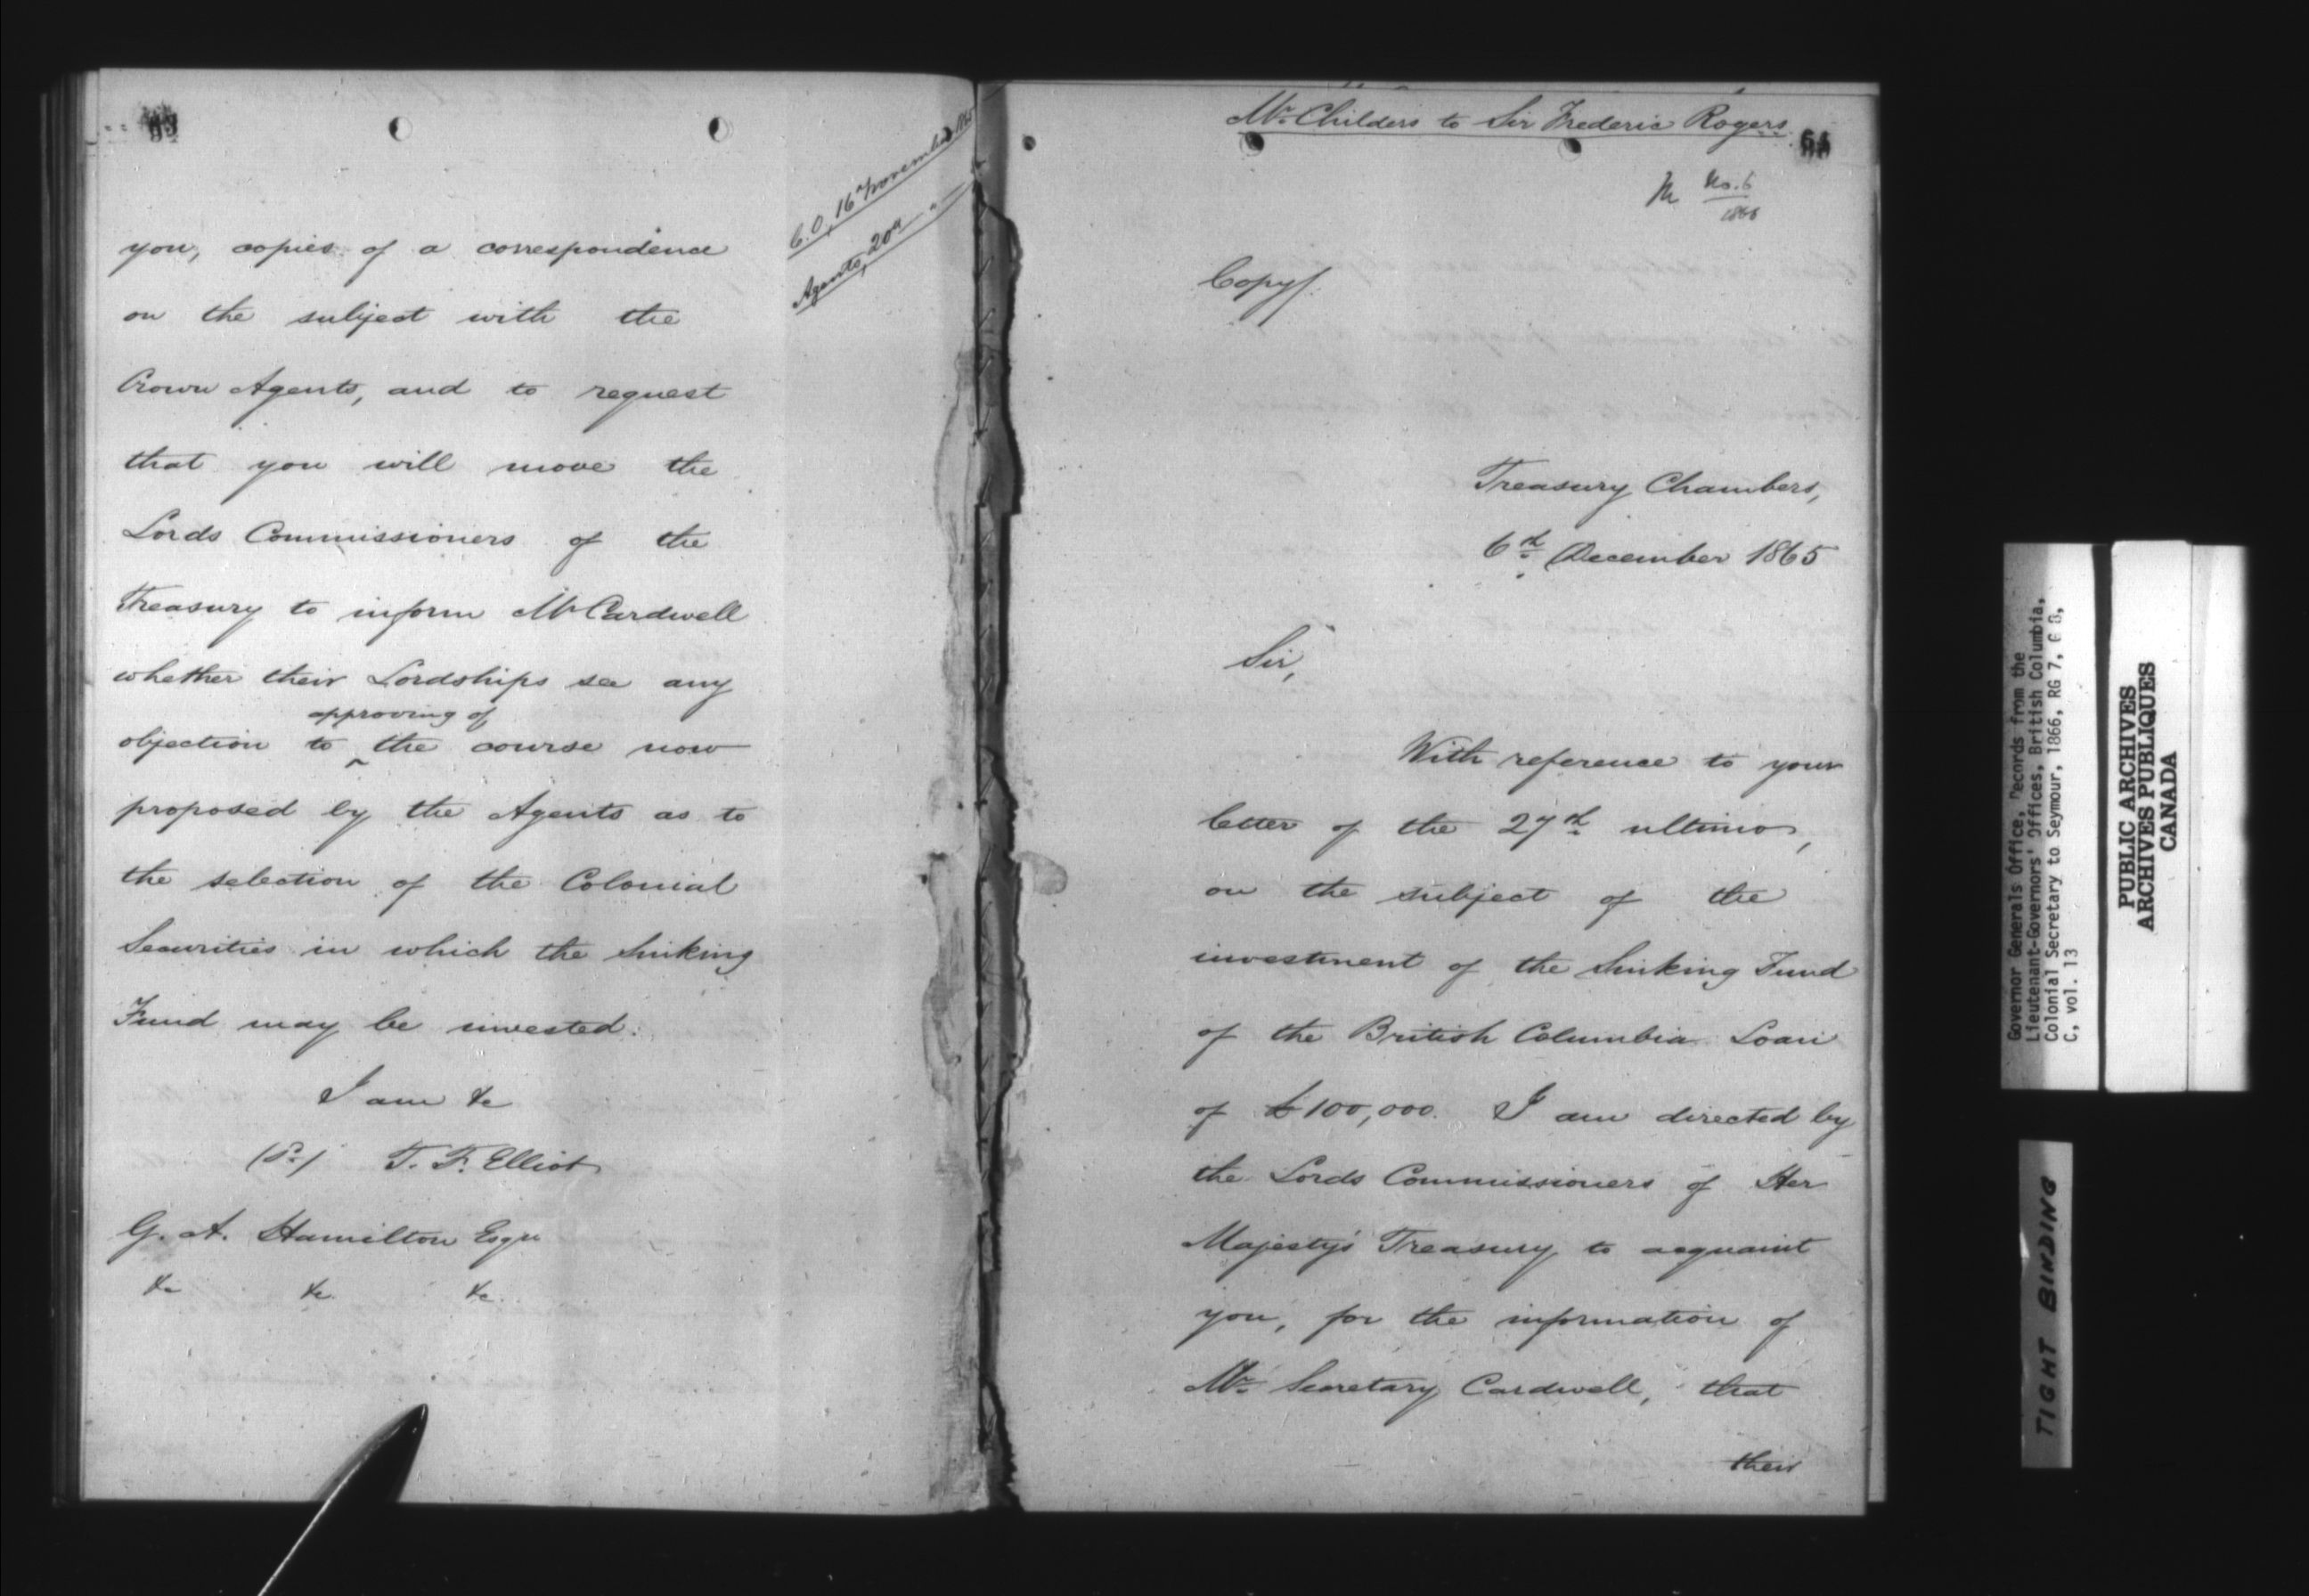 C.O, 16th November 1865
Agents, 20th "
you, copies of a correspondence
on the subject with the
Crown Agents, and to request
that you will move the
Lords Commissioners of the
Treasury to inform Mr Cardwell
whether their Lordships see any
approving of
objection to ‸ the course now
proposed by the Agents as to
the selection of the Colonial
Securities in which the Sinking
Fund may be invested.
I am &c
T. F. Elliot
G. A. Hamilton Esqre
&c &c &c
Mr. Childers to Sir Frederic Rogers
64
No. 6
Copy/.
Treasury Chambers,
6th December 1865
Sir,
With reference to your
letter of the 27th ultimo,
on the subject of the
investment of the Sinking Fund
of the British Columbia Loan
of £100,000. I am directed by
the Lords Commissioners of Her
Majesty's Treasury to acquaint
you, for the information of
Mr. Secretary Cardwell, that
their
Governor Generals Office, Records from the
Lieutenant-Governors' Offices, British Columbia,
Colonial Secretary to Seymour, 1866, RG 7, G 8,
C, vol. 13
PUBLIC ARCHIVES
ARCHIVES PUBLIQUES
CANADA
TIGHT BINDING